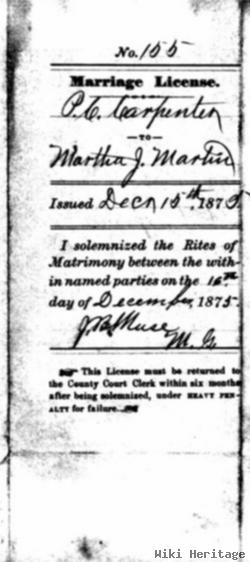 No. 155
Marriage License.
P. C. Carpenter
—TO—
Martha J. Martin
Issued Decr 15th 1875
I solemnized the Rites of
Matrimony between the with-
in named parties on the 16th
day of December, 1875
J. B. Muse
M. G.
This License must be returned to
the County Court Clerk within six months
after being solemnized, under HEAVY PEN-
ALTY for failure.
Wiki Heritage